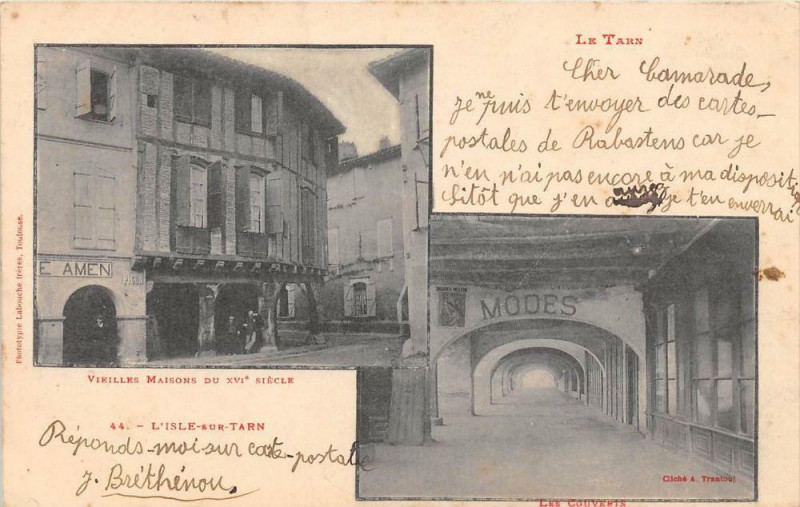 LE TARN
Cher Camarade,
je ne puis t'envoyer des cartes-
postales de Rabastens car je
n'en n'ai pas encore à ma disposition
Sitôt que j'en aurai je t'en enverrai
E AMEN
MODES
Phototypie Labouche frères, Toulouse.
VIEILLES MAISONS DU XVIe SIÈCLE
44. - L'ISLE-SUR-TARN
Réponds-moi sur carte-postale
J. Bréthénou,
Cliché A. Trantoul
LES COUVERTS